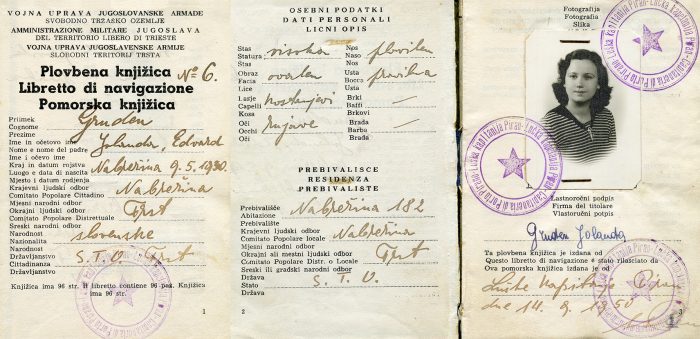 VOJNA UPRAVA JUGOSLOVANSKE ARMADE
SVOBODNO TRŽAŠKO OZEMLJE
AMMINISTRAZIONE MILITARE JUGOSLAVA
DEL TERRITORIO LIBERO DI TRIESTE
VOJNA UPRAVA JUGOSLAVENSKE ARMIJE
SLOBODNI TERITORIJ TRSTA
Plovbena knjižica № 6.
Libretto di navigazione
Pomorska knjižica
Priimek
Cognome Gruden
Prezime
Ime in očetovo ime
Nome e nome del padre Jolanda, Edvard
Ime i očevo ime
Kraj in datum rojstva
Luogo e data di nascita Nabrežina 9.5.1930.
Mjesto i datum rodjenja
Krajevni ljudski odbor
Comitato Popolare Cittadino Nabrežina
Mjesni narodni odbor
Okrajni ljudski odbor
Comitato Popolare Distrettuale Trst
Sreski narodni odbor
Narodnost
Nazionalita slovenske
Narodnost
Državljanstvo
Cittadinanza S. T. O. Trst
Državljanstvo
Knjižica ima 96 str. Il libretto contiene 96 pag. Knjižica ima
96 str.
1
OSEBNI PODATKI
DATI PERSONALI
LICNI OPIS
Stas Nos
Statura visoka Naso pravilen
Stas Nos
Obraz Usta
Facia ovalen Bocca pravilna
Lice Usta
Lasje Brki
Capelli kostanjevi Baffi —
Kosa Brkovi
Oči Brada
Occhi rujave Barba —
Oči Brada
PREBIVALISCE
RESIDENZA
PREBIVALISTE
Prebivališče
Abitazione Nabrežina 182
Prebivalište
Krajevni ljudski odbor
Comitato Popolare locale Nabrežina
Mjesni narodni odbor
Okrajni ali mestni ljudski odbor
Comitato Popolare Distr. o Locale Trst
Sreski ili gradski narodni odbor
Država
Stato S. T. O.
Država
2
Fotografija
Fotografia
Slika
Lučka Kapitanija Piran
Capitaneria di Porto Pirano
Lastnoročni podpis
Firma del titolare
Vlastoručni potpis
Gruden Jolanda
Ta plovbena knjižica je izdana od
Questo libretto di navigazione è stato rilasciato da
Ova pomorska knjižica izdana je od
Luške kapitanije Piran
dne 14. 9. 1950
3